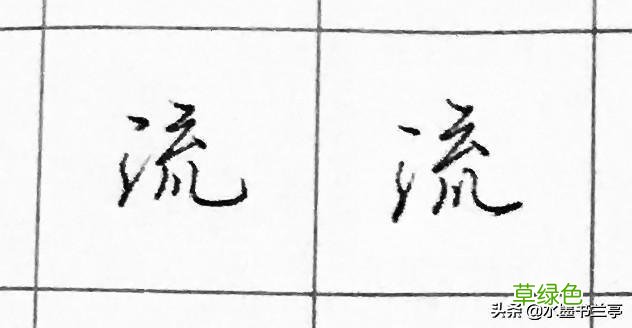 流 流
草绿色
头条 @水墨书兰亭